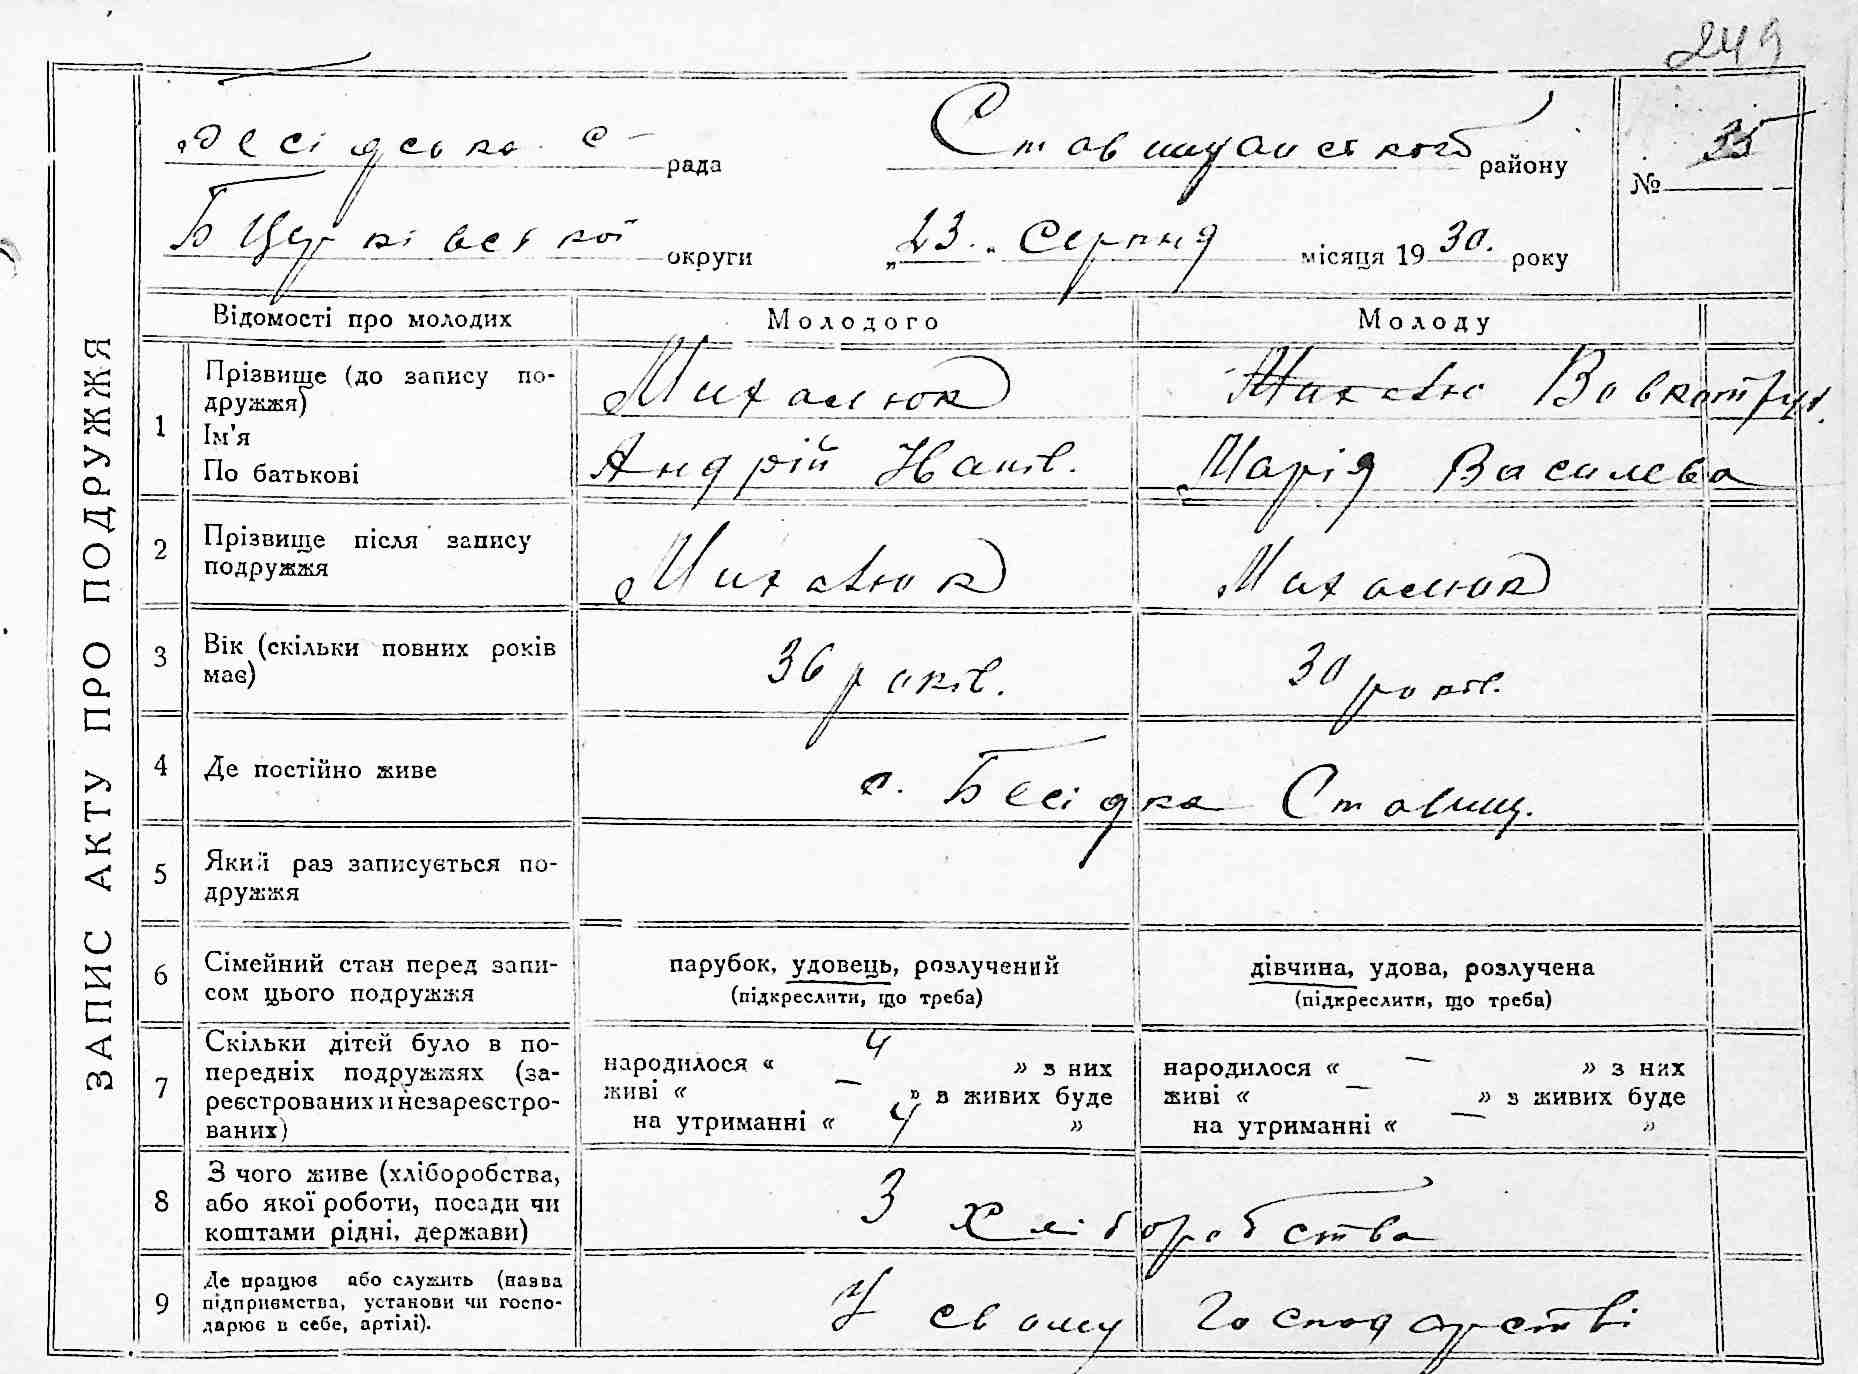 249
Бесідська с- рада Ставищанського району № 35
Б Церківської округи „23.“ Серпня місяця 1930. року
ЗАПИС АКТУ ПРО ПОДРУЖЖЯ
Відомості про молодих Молодого Молоду
1 Прізвище (до запису по-
дружжя) Михалюк Михалю Вовкотруб.
Ім'я
По батькові Андрій Іванів. Марія Василева
2 Прізвище після запису
подружжя Михалюк Михалюк
3 Вік (скільки повних років
має) 36 років. 30 років.
4 Де постійно живе с. Бесідка Ставищ.
5 Який раз записується по-
дружжя
6 Сімейний стан перед запи-
сом цього подружжя
парубок, удовець, розлучений
(підкреслити, що треба)
дівчина, удова, розлучена
(підкреслити, що треба)
7 Скільки дітей було в по-
передніх подружжях (за-
реєстрованих и незареєстро-
ваних)
народилося « 4 » з них
живі « — » з живих буде
на утриманні « 4 »
народилося « — » з них
живі « — » з живих буде
на утриманні « — »
8 З чого живе (хліборобства,
або якої роботи, посади чи
коштами рідні, держави)
З хліборобства
9 Де працює або служить (назва
підприємства, установи чи госпо-
дарює в себе, артілі).
У свому Господарстві